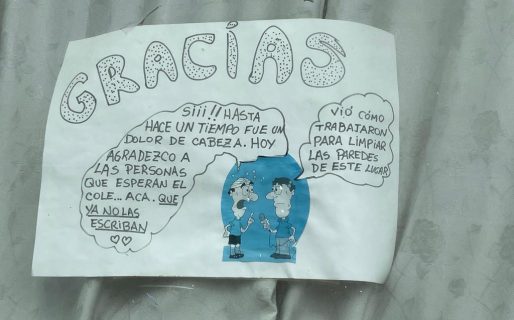 GRACIAS
VIÓ CÓMO
TRABATARON
PARA LIMPIAR
LAS PAREDES
DE ESTE LUGAR
SIII!! HASTA
HACE UN TIEMPO FUE UN
DOLOR DE CABEZA. HOY
AGRADEZCO A
LAS PERSONAS
QUE ESPERAN EL
COLE... ACA. QUE
YA NO LAS
ESCRIBAN